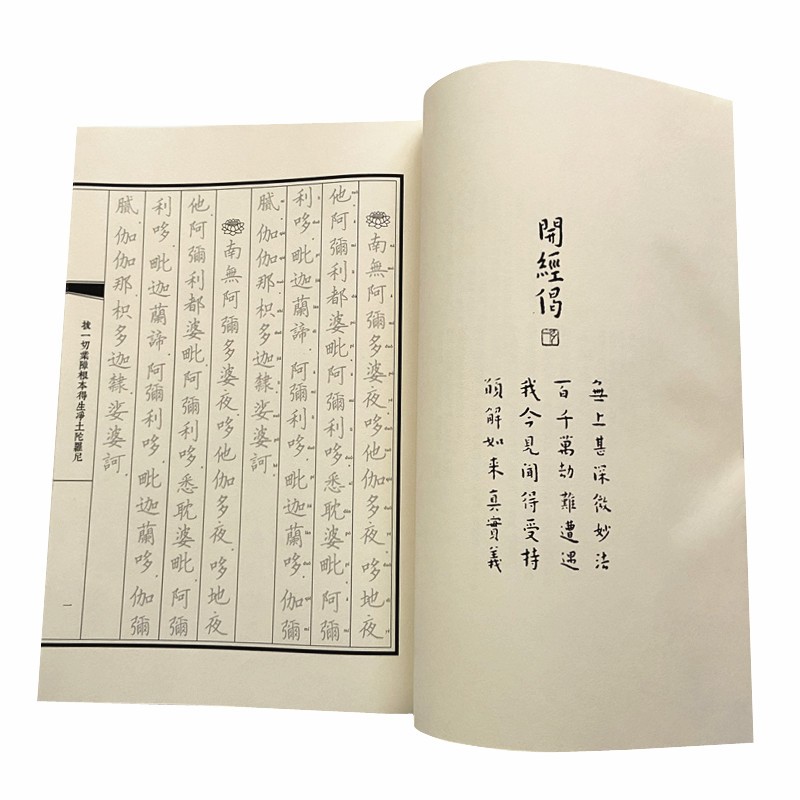 開經偈
無上甚深微妙法
百千萬劫難遭遇
我今見聞得受持
願解如來真實義
南無阿彌多婆夜。哆他伽多夜。哆地夜
他。阿彌利都婆毗。阿彌利哆。悉耽婆毗。阿彌
利哆。毗迦蘭諦。阿彌利哆。毗迦蘭哆。伽彌
膩。伽伽那。枳多迦隸。娑婆訶。
南無阿彌多婆夜。哆他伽多夜。哆地夜
他。阿彌利都婆毗。阿彌利哆。悉耽婆毗。阿彌
利哆。毗迦蘭諦。阿彌利哆。毗迦蘭哆。伽彌
膩。伽伽那。枳多迦隸。娑婆訶。
拔一切業障根本得生淨土陀羅尼
一